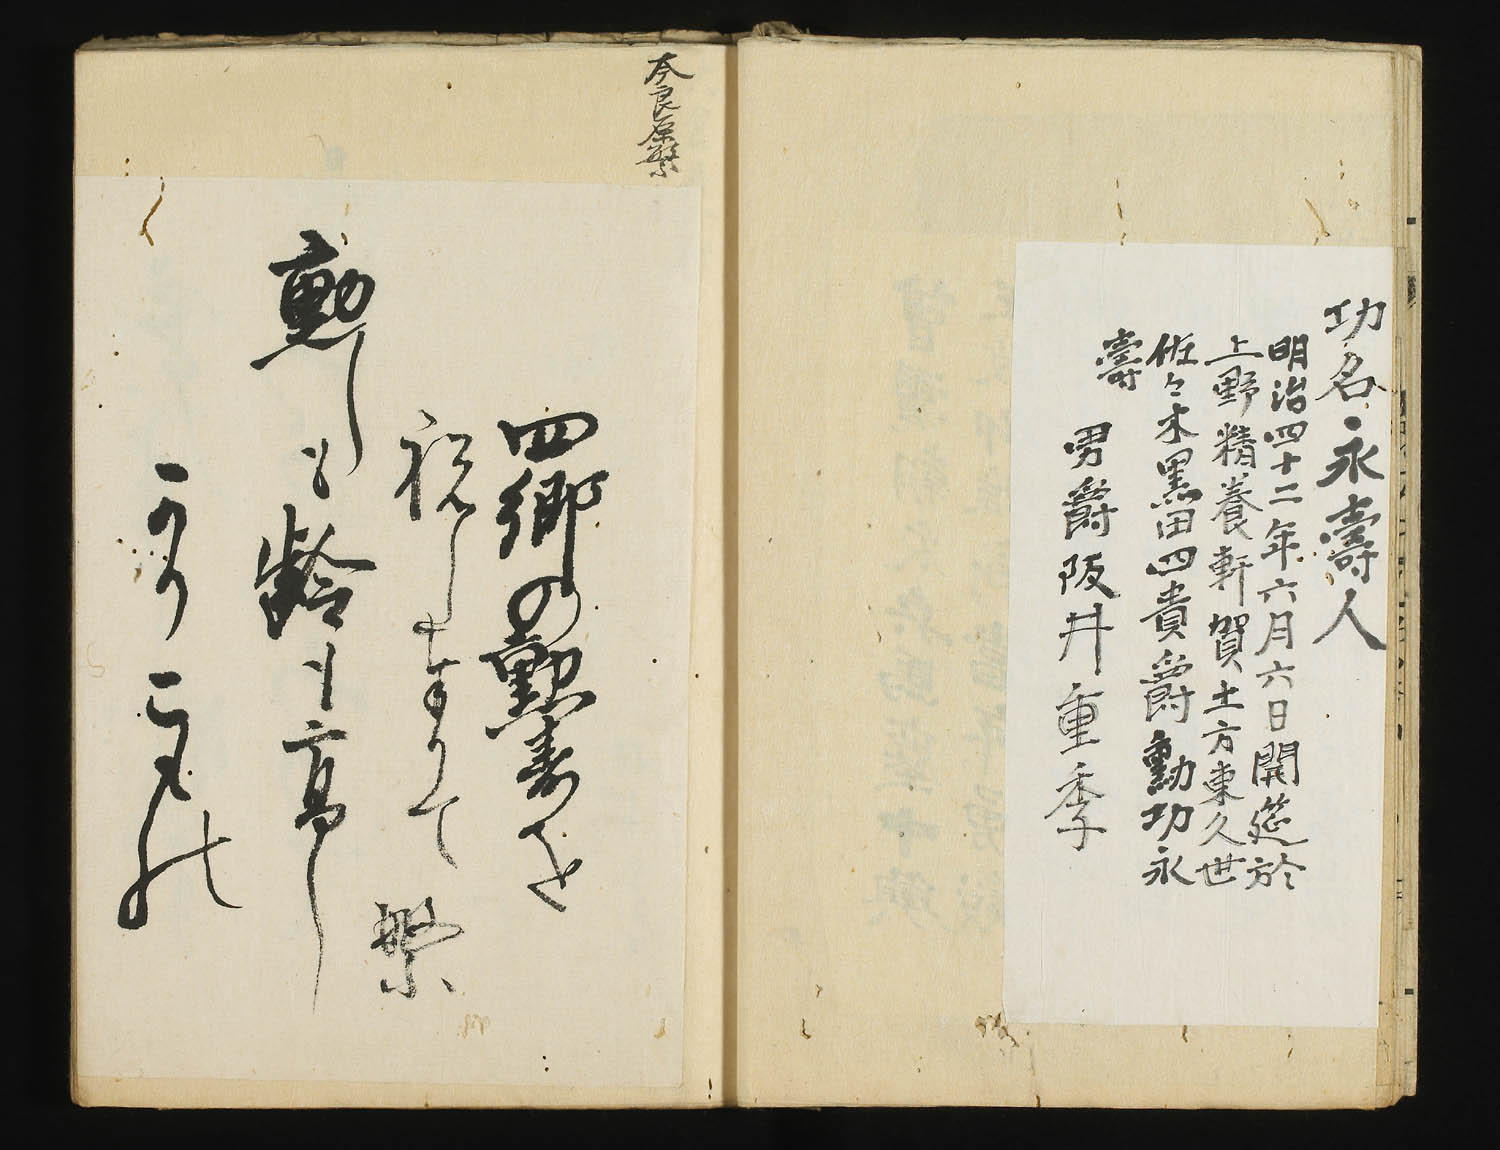 功名永壽人
明治四十二年六月六日開筵於
上野精養軒賀土方東久世
佐々木黒田四貴爵勲功永
壽
男爵阪井重季
奈良原繁
四卿の勲寿を
祝しまつりて
繁
勲しも齢も高し